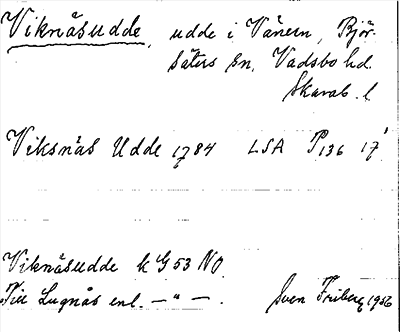 Viknäsudde, udde i Vänern, Björ-
säters sn, Vadsbo hd.
Skarab. l
Viksnäs Udde 1784 LSA P136 17¹
Viknäsudde k G 53 NO.
Till Lugnås enl. —"— . Sven Friberg 1956